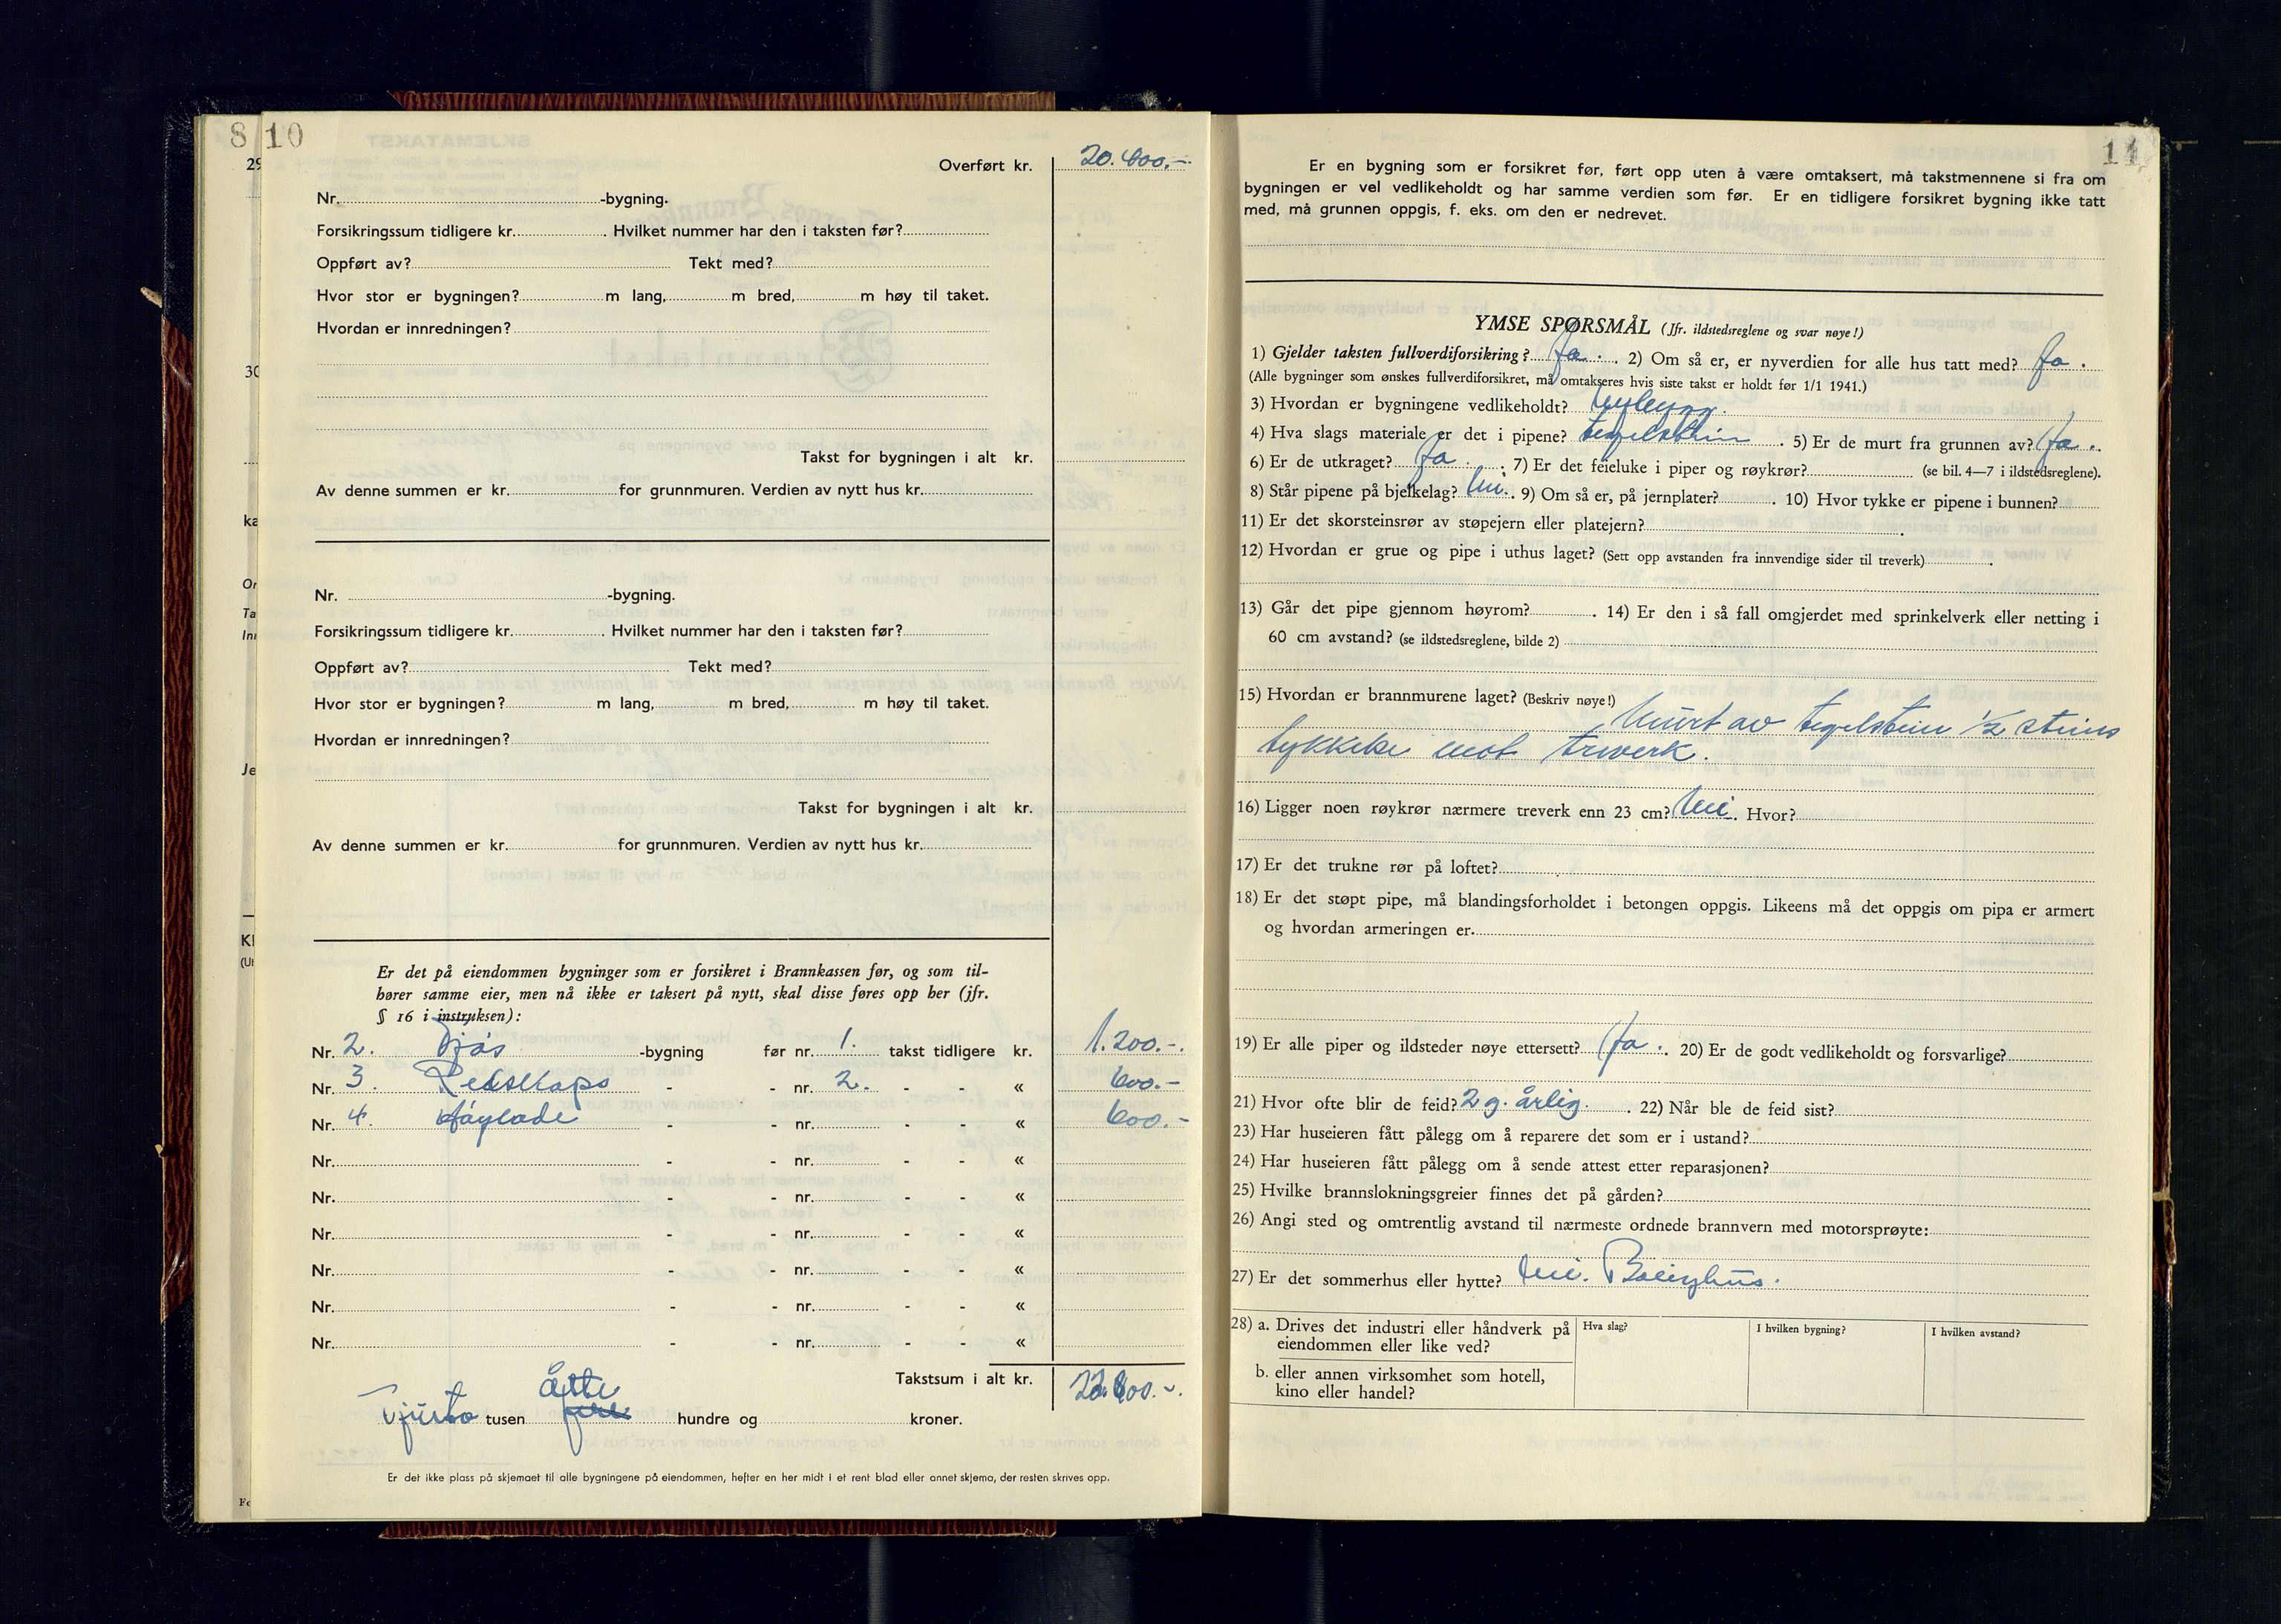 8 10
29
30
ka
Or
Ta
Inn
Je
Kl
(Ut
Fo
Overført kr. 20.400.-
Nr. -bygning.
Forsikringssum tidligere kr. . Hvilket nummer har den i taksten før?
Oppført av? Tekt med?
Hvor stor er bygningen? m lang, m bred, m høy til taket.
Hvordan er innredningen?
Takst for bygningen i alt kr.
Av denne summen er kr. for grunnmuren. Verdien av nytt hus kr.
Nr. -bygning.
Forsikringssum tidligere kr. . Hvilket nummer har den i taksten før?
Oppført av? Tekt med?
Hvor stor er bygningen? m lang, m bred, m høy til taket.
Hvordan er innredningen?
Takst for bygningen i alt kr.
Av denne summen er kr. for grunnmuren. Verdien av nytt hus kr.
Er det på eiendommen bygninger som er forsikret i Brannkassen før, og som til-
hører samme eier, men nå ikke er taksert på nytt, skal disse føres opp her (jfr.
§ 16 i instruksen):
Nr. 2. Fjøs -bygning før nr. 1. takst tidligere kr. 1.200.-.
Nr. 3. Redskaps - - nr. 2. - - « 600.-
Nr. 4. Høylade - - nr. - - « 600.-
Nr. - - nr. - - «
Nr. - - nr. - - «
Nr. - - nr. - - «
Nr. - - nr. - - «
Nr. - - nr. - - «
Nr. - - nr. - - «
Takstsum i alt kr. 22.800.-.
åtte
Tjueto tusen fire hundre og kroner.
Er det ikke plass på skjemaet til alle bygningene på eiendommen, hefter en her midt i et rent blad eller annet skjema, der resten skrives opp.
11
Er en bygning som er forsikret før, ført opp uten å være omtaksert, må takstmennene si fra om
bygningen er vel vedlikeholdt og har samme verdien som før. Er en tidligere forsikret bygning ikke tatt
med, må grunnen oppgis, f. eks. om den er nedrevet.
YMSE SPØRSMÅL (Jfr. ildstedsreglene og svar nøye!)
1) Gjelder taksten fullverdiforsikring? Ja. . 2) Om så er, er nyverdien for alle hus tatt med? Ja.
(Alle bygninger som ønskes fullverdiforsikret, må omtakseres hvis siste takst er holdt før 1/1 1941.)
3) Hvordan er bygningene vedlikeholdt? Nybygg.
4) Hva slags materiale er det i pipene? tegelstein . 5) Er de murt fra grunnen av? Ja.
6) Er de utkraget? Ja. ; 7) Er det feieluke i piper og røykrør? (se bil. 4—7 i ildstedsreglene).
8) Står pipene på bjelkelag? Nei. . 9) Om så er, på jernplater? . 10) Hvor tykke er pipene i bunnen?
11) Er det skorsteinsrør av støpejern eller platejern? .
12) Hvordan er grue og pipe i uthus laget? (Sett opp avstanden fra innvendige sider til treverk) .
13) Går det pipe gjennom høyrom? . 14) Er den i så fall omgjerdet med sprinkelverk eller netting i
60 cm avstand? (se ildstedsreglene, bilde 2)
15) Hvordan er brannmurene laget? (Beskriv nøye!)
Murt av tegelstein 1/2 steins
tykkelse mot treverk.
16) Ligger noen røykrør nærmere treverk enn 23 cm? Nei . Hvor?
17) Er det trukne rør på loftet?
18) Er det støpt pipe, må blandingsforholdet i betongen oppgis. Likeens må det oppgis om pipa er armert
og hvordan armeringen er.
19) Er alle piper og ildsteder nøye ettersett? Ja. . 20) Er de godt vedlikeholdt og forsvarlige?
21) Hvor ofte blir de feid? 2 g. årlig. . 22) Når ble de feid sist?
23) Har huseieren fått pålegg om å reparere det som er i ustand?
24) Har huseieren fått pålegg om å sende attest etter reparasjonen?
25) Hvilke brannslokningsgreier finnes det på gården?
26) Angi sted og omtrentlig avstand til nærmeste ordnede brannvern med motorsprøyte:
27) Er det sommerhus eller hytte? Nei. Bolighus.
28) a. Drives det industri eller håndverk på
eiendommen eller like ved?
b. eller annen virksomhet som hotell,
kino eller handel?
Hva slag?
I hvilken bygning?
I hvilken avstand?